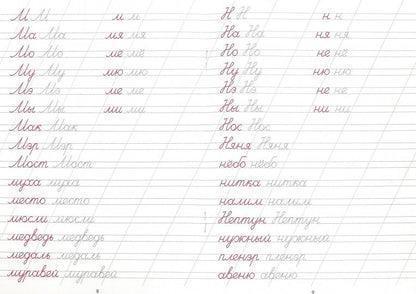 М М м м
Ма Ма мя мя
Мо Мо мё мё
Му Му мю мю
Мэ Мэ ме ме
Мы Мы ми ми
Мак Мак
Мэр Мэр
Мост Мост
муха муха
место место
мюсли мюсли
медведь медведь
медаль медаль
муравей муравей
Н Н н н
На На ня ня
Но Но нё нё
Ну Ну ню ню
Нэ Нэ не не
Ны Ны ни ни
Нос Нос
Няня Няня
нёбо нёбо
нитка нитка
налим налим
Нептун Нептун
нужный нужный
пленэр пленэр
авеню авеню